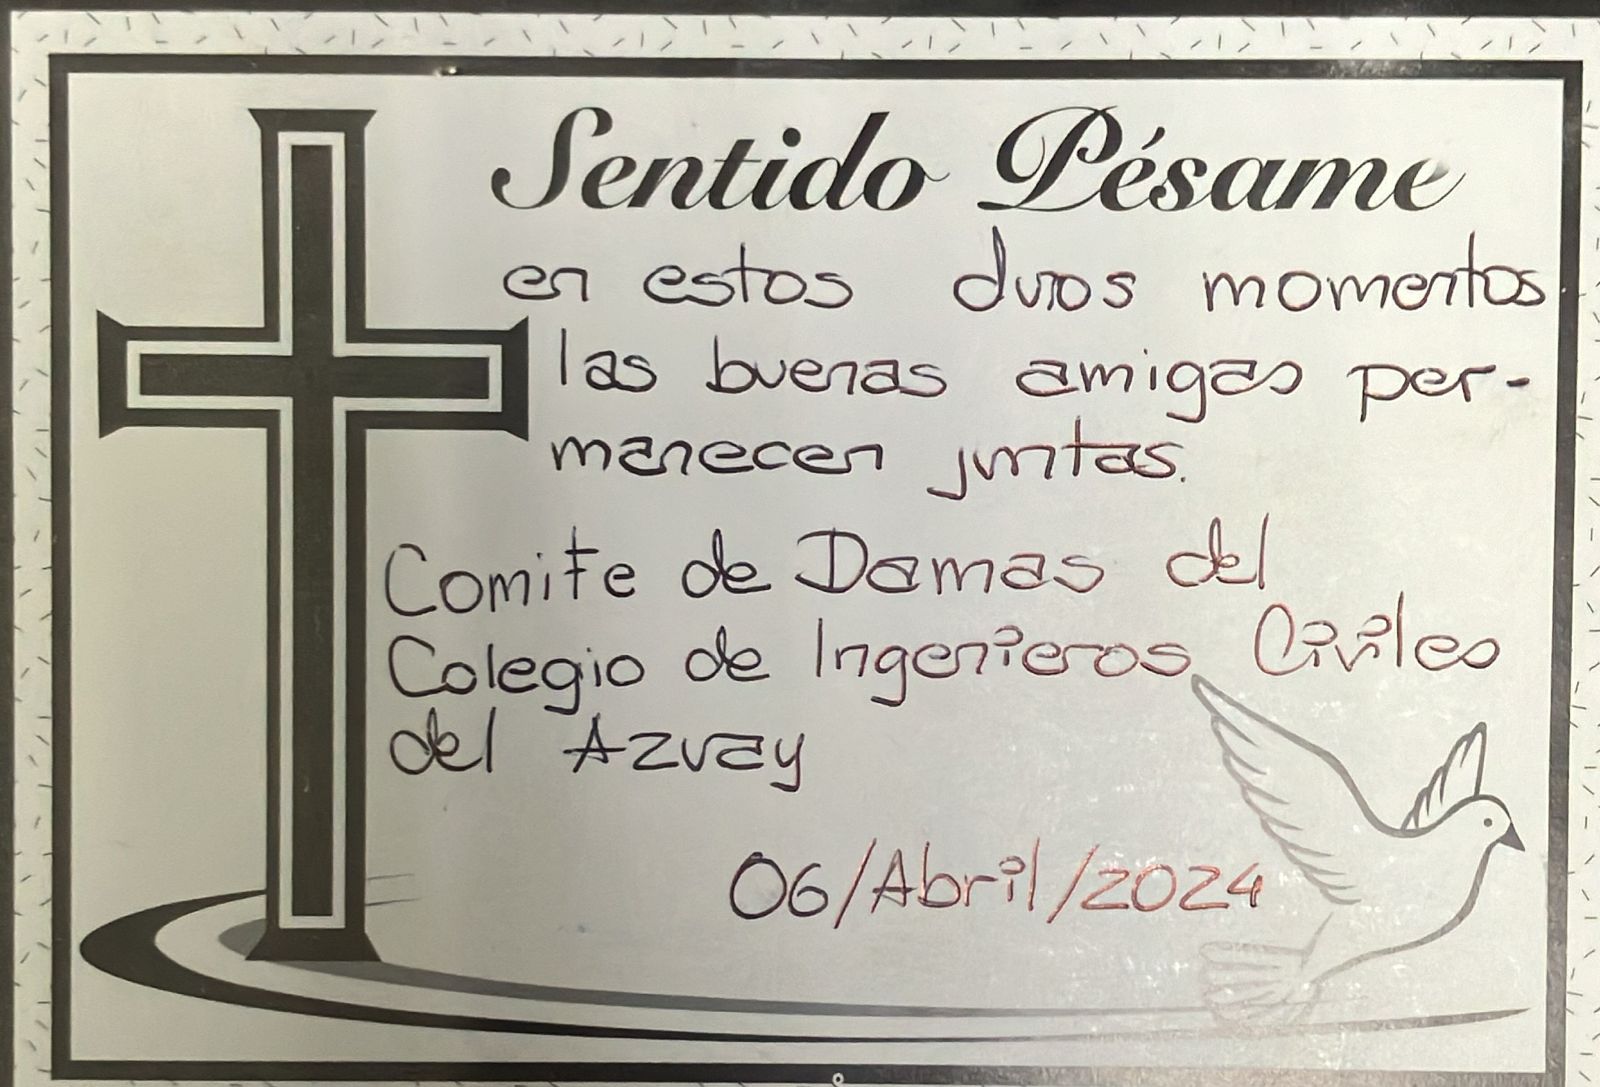 Sentido Pésame
en estos duros momentos
las buenas amigas per-
manecen juntas.
Comite de Damas del
Colegio de Ingenieros Civiles
del Azuay
06/Abril/2024